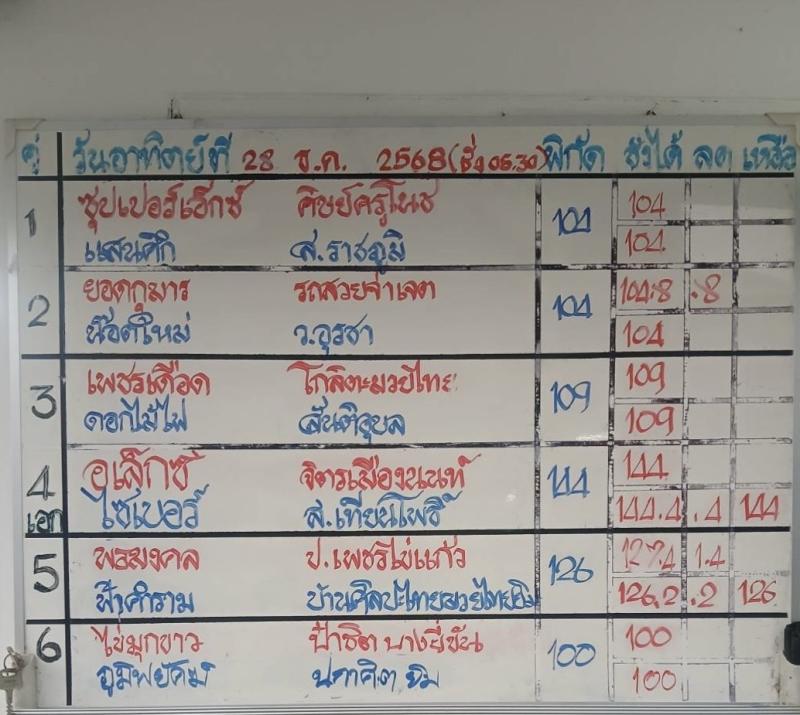 คู่ วันอาทิตย์ที่ 28 ธ.ค. 2568 (ชั่ง 05.30) พิกัด ชั่งได้ ลด เหลือ
1 ซุปเปอร์เอ็กซ์ ศิษย์ครูโนช 104 104
แสนศึก ส.ราชภูมิ 104
2 ยอดกุมาร รถสวยจ่าเจต 104 104.8 .8
น๊อตใหม่ ว.อุรชา 104
3 เพชรเดือด โกลิตะมวยไทย 109 109
ดอกไม้ไฟ สันติอุบล 109
4 อเล็กซ์ จิตรเมืองนนท์ 144 144
เอก ไซเบอร์ ส.เทียนโพธิ์ 144.4 .4 144
5 พรมงคล ป.เพชรไข่แก้ว 126 127.4 1.4
ฟ้าคำราม บ้านศิลปะไทยมวยไทยยิม 126.2 .2 126
6 ไข่มุกขาว ป้าธิต บางยี่ขัน 100 100
ภูมิพยัคฆ์ ยิม 100